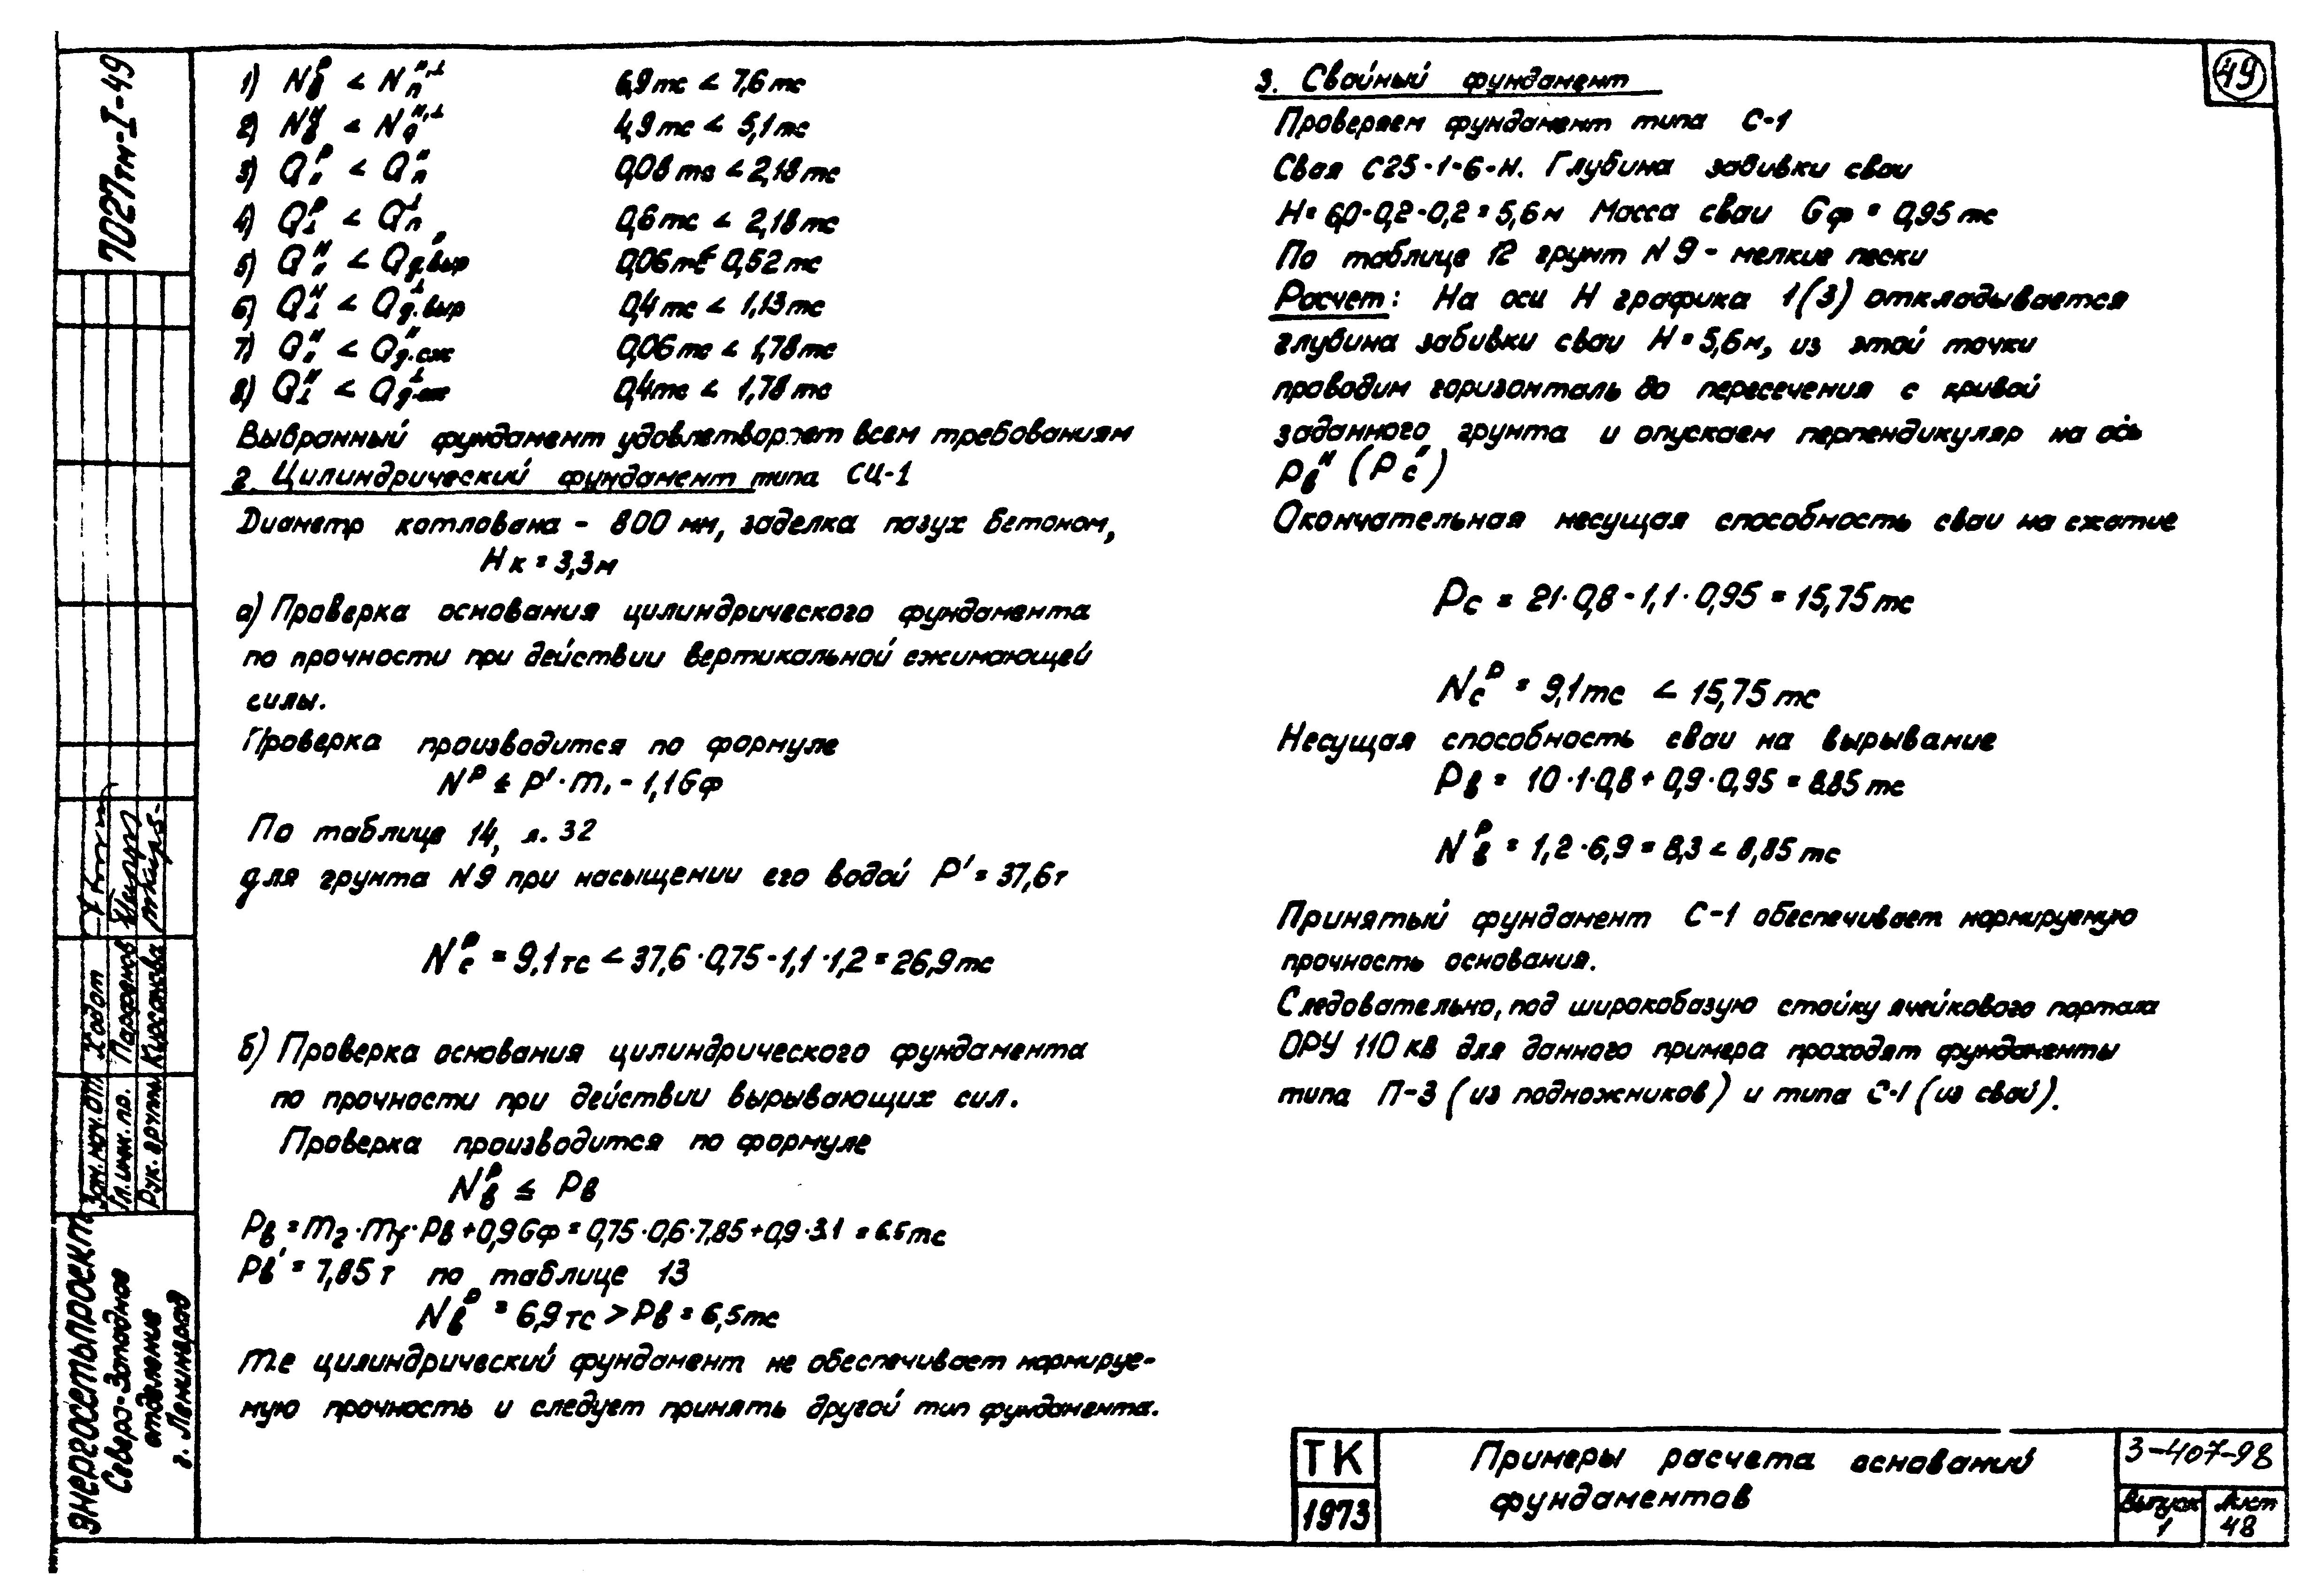 1) Nвᴾ < Nпᴴ,⊥ 6,9тс < 7,6тс
2) Nвᴴ < Nдᴴ,⊥ 4,9тс < 5,1тс
3) Qᴾ < Qпᴴ 0,08тс < 2,18тс
4) Q⊥ᴾ < Qп⊥ 0,6тс < 2,18тс
5) Qᴴ < Qд.выр 0,06т< 0,52тс
6) Q⊥ᴴ < Qд.выр⊥ 0,4тс < 1,13тс
7) Qᴴ < Qд.сжᴴ 0,06тс < 1,78тс
8) Q⊥ᴴ < Qд.сж⊥ 0,4тс < 1,78тс
Выбранный фундамент удовлетворяет всем требованиям
2. Цилиндрический фундамент типа СЦ-1
Диаметр котлована - 800 мм, заделка пазух бетоном,
Нк = 3,3м
а) Проверка основания цилиндрического фундамента
по прочности при действии вертикальной сжимающей
силы.
Проверка производится по формуле
Nᴾ ≤ Р'·m, - 1,1Gф
По таблице 14, л. 32
для грунта N9 при насыщении его водой Р' = 37,6т
Nсᴾ = 9,1тс < 37,6·0,75-1,1·1,2 = 26,9тс
б) Проверка основания цилиндрического фундамента
по прочности при действии вырывающих сил.
Проверка производится по формуле
Nвᴾ ≤ Рв
Рв = m2·mγ·Рв+0,9Gф = 0,75·0,6·7,85+0,9·3.1 = 6.5тс
Рв' = 7,85т по таблице 13
Nвᴾ = 6,9тс > Рв = 6,5тс
т.е цилиндрический фундамент не обеспечивает нормируе-
мую прочность и следует принять другой тип фундамента.
3. Свайный фундамент
Проверяем фундамент типа С-1
Свая С25-1-6-Н. Глубина забивки сваи
Н= 6,0-0,2-0,2 = 5,6м Масса сваи Gф = 0,95тс
По таблице 12 грунт N9 - мелкие пески
Расчет: На оси Н графика 1(3) откладывается
глубина забивки сваи Н=5,6м, из этой точки
проводим горизонталь до пересечения с кривой
заданного грунта и опускаем перпендикуляр на ось
Рвᴴ (Рс')
Окончательная несущая способность сваи на сжатие
Рс = 21·0,8-1,1·0,95 = 15,75тс
Nсᴾ = 9,1тс < 15,75тс
Несущая способность сваи на вырывание
Рв = 10·1·0,8+0,9·0,95 = 8.85тс
Nвᴾ = 1,2·6,9 = 8,3 < 8,85тс
Принятый фундамент С-1 обеспечивает нормируемую
прочность основания.
Следовательно, под широкобазую стойку ячейкового портала
ОРУ 110кв для данного примера проходят фундаменты
типа П-3 (из подножников) и типа С-1 (из свай).
49
7027тм-I-49
Зам.нач.от Ходот
Гл.инж.пр. Парфенов
Рук. группы Кирсанова
Энергосетьпроект
Северо-Западное
отделение
г. Ленинград
ТК
1973
Примеры расчета оснований
фундаментов
3-407-98
Выпуск
1
Лист
48